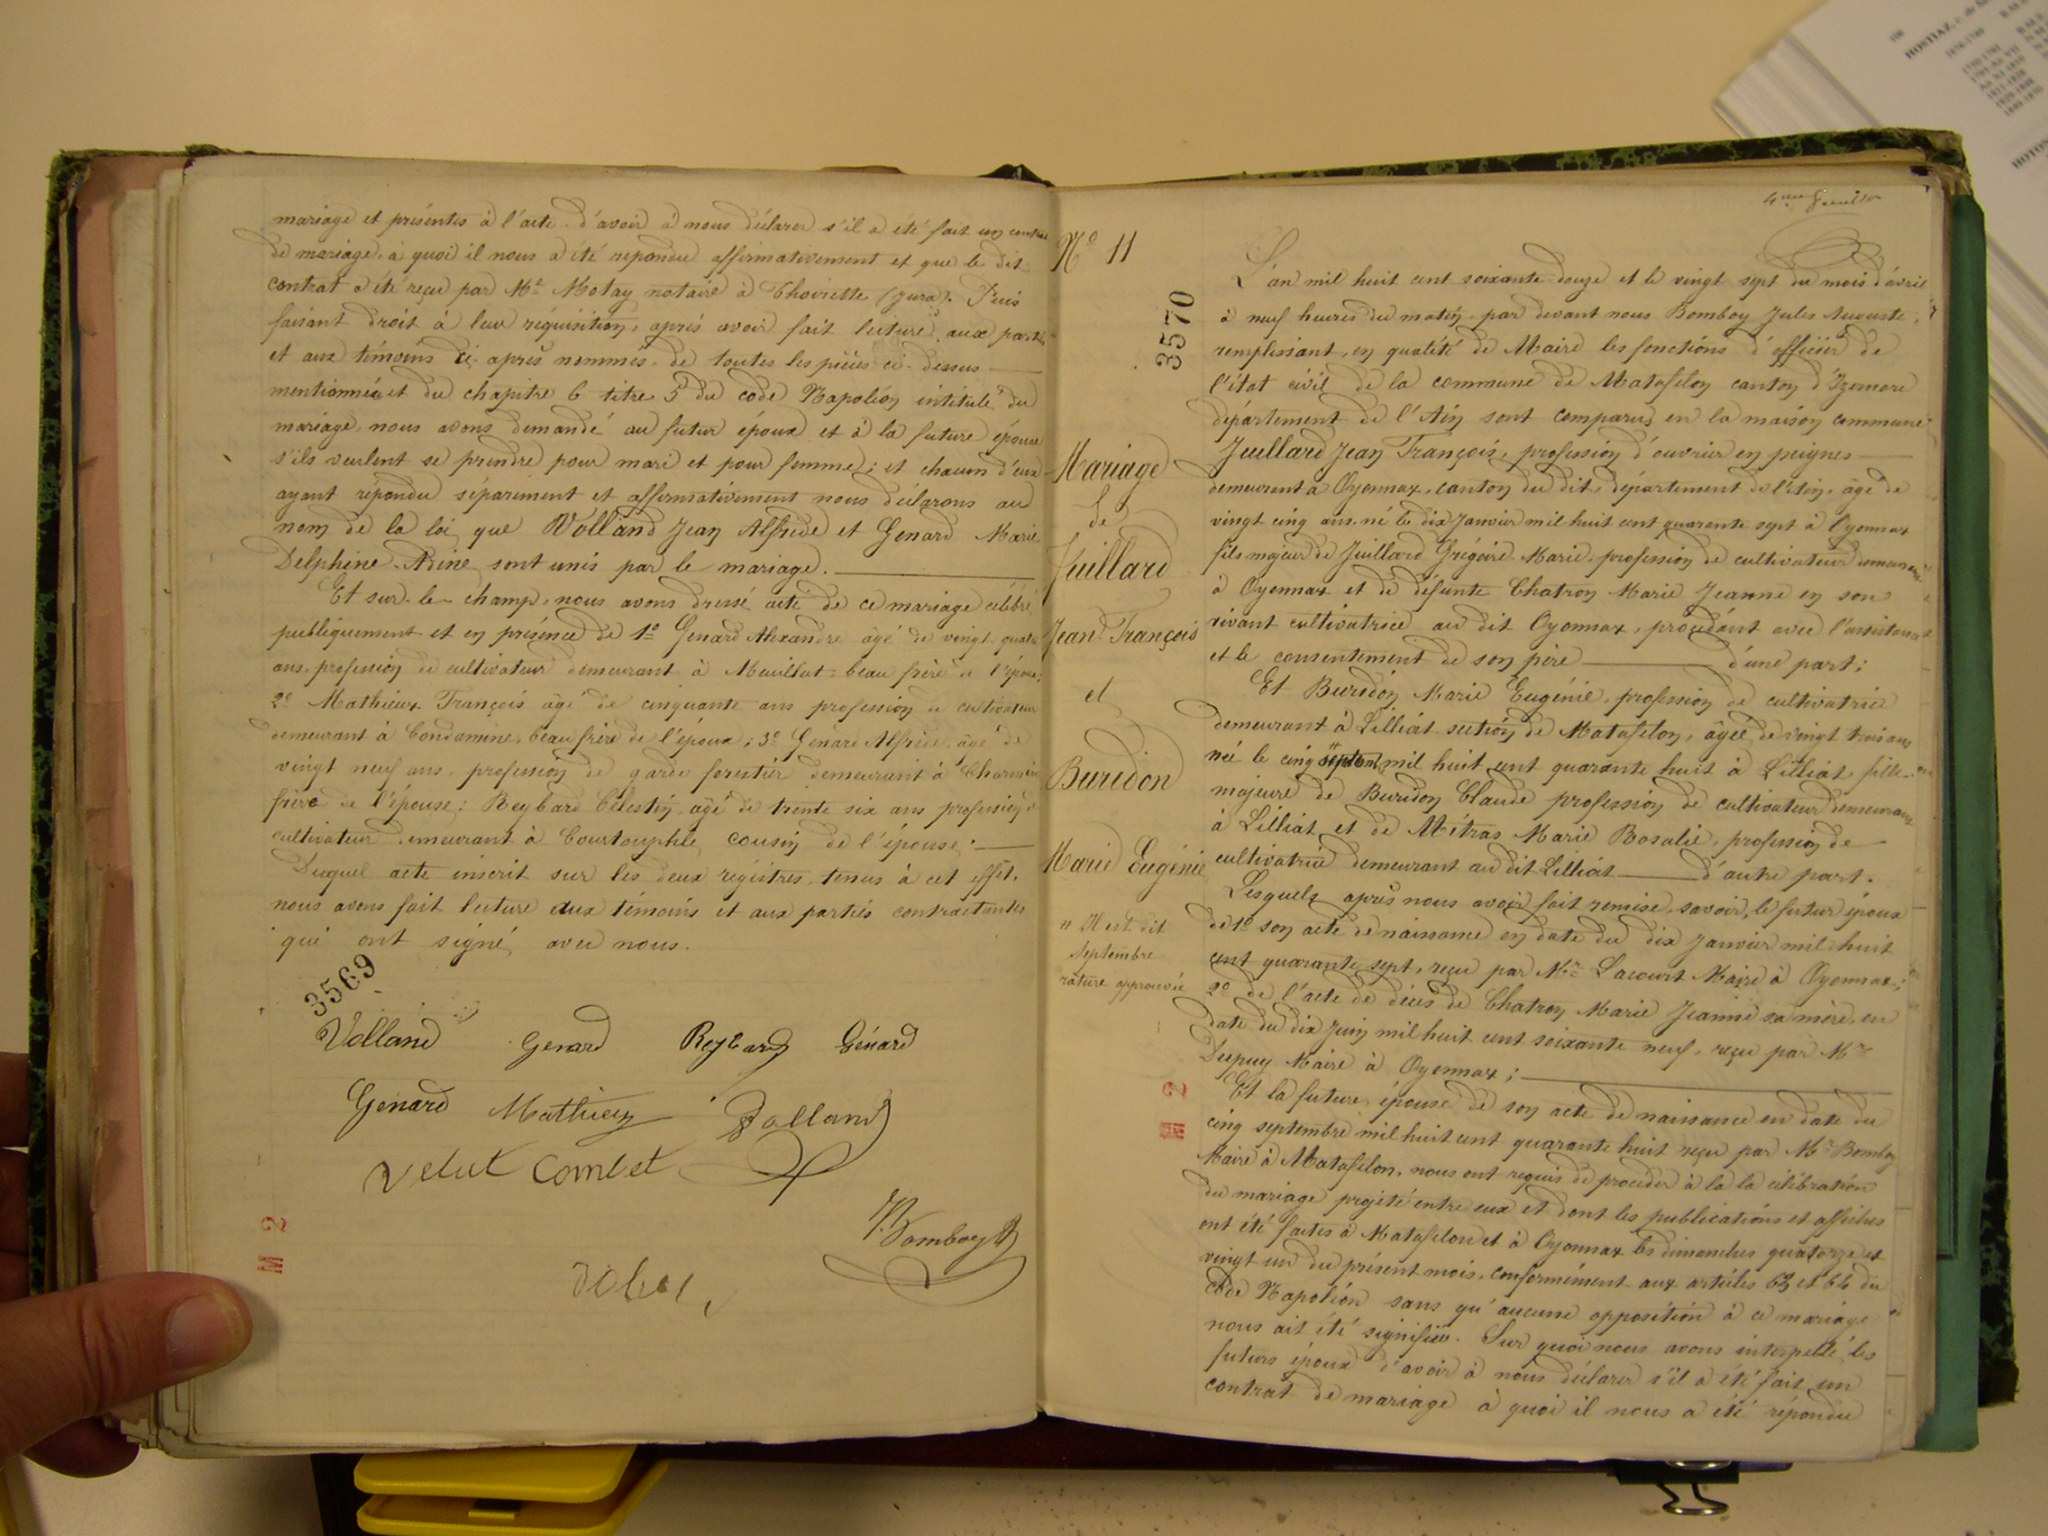 mariage et présentes à l'acte d'avoir à nous déclarer s'il a été fait un contrat
de mariage, à quoi il nous a été répondu affirmativement et que le dit
contrat a été reçu par Me Molay notaire à Thoirette (Jura). Puis
faisant droit à leur réquisition, après avoir fait lecture aux parties
et aux témoins ci-après nommés de toutes les pièces ci-dessus
mentionnées et du chapitre 6 titre 5 du code Napoléon intitulé du
mariage, nous avons demandé au futur époux et à la future épouse
s'ils veulent se prendre pour mari et pour femme; et chacun d'eux
ayant répondu séparément et affirmativement nous déclarons au
nom de la loi que Volland Jean Alfrede et Genard Marie
Delphine Adine sont unis par le mariage.
Et sur-le-champ, nous avons dressé acte de ce mariage célébré
publiquement et en présence de 1o Genard Alexandre âgé de vingt quatre
ans, profession de cultivateur demeurant à beau frère de l'épouse;
2o Mathieux François âgé de cinquante ans profession de cultivateur
demeurant à Condamine, beau frère de l'époux; 3o Genard Alfride, âgé de
vingt neuf ans, profession de garde forestier demeurant à
frère de l'épouse; Reybard Célestin âgé de trente six ans profession de
cultivateur demeurant à Courtouphle, cousin de l'épouse;
Duquel acte inscrit sur les deux régistres tenus à cet effet,
nous avons fait lecture aux témoins et aux parties contractantes
qui ont signé avec nous.
3569
Volland Genard Reybard Génard
Genard Mathieux Volland
Velut Combet
Bomboy
M 2
4me feuillet
No 11
3570
Mariage
de
Juillard
Jean François
et
Buridon
Marie Eugénie
" Il est dit
septembre
rature approuvée
M 2
L'an mil huit cent soixante-douze et le vingt sept du mois d'avril
à neuf heures du matin, par devant nous Bomboy Jules Auguste,
remplissant, en qualité de Maire les fonctions d'officier de
l'état civil de la commune de Matafelon canton d'Izernore
département de l'Ain sont comparus en la maison commune
Juillard Jean François, profession d'ouvrier en peignes
demeurant à Oyonnax, canton du dit, département de l'Ain, âgé de
vingt cinq ans, né le dix Janvier mil huit cent quarante sept à Oyonnax
fils majeur de Juillard Grégoire Marie, profession de cultivateur demeurant
à Oyonnax et de défunte Chatron Marie Jeanne en son
vivant cultivatrice au dit Oyonnax, procédant avec l'assistance
et le consentement de son père d'une part;
Et Buridon Marie Eugénie, profession de cultivatrice
demeurant à Lilliat section de Matafelon, âgée de vingt trois ans
née le cinq " mil huit cent quarante huit à Lilliat fille
majeure de Buridon Claude profession de cultivateur demeurant
à Lilliat et de Mitras Marie Rosalie, profession de
cultivatrice demeurant au dit Lilliat d'autre part.
Lesquels après nous avoir fait remise, savoir, le futur époux
de 1o son acte de naissance en date du dix Janvier mil huit
cent quarante sept, reçu par Mr Lacourt Maire à Oyonnax;
2o de l'acte de décès de Chatron Marie Jeanne sa mère, en
date du dix Juin mil huit cent soixante neuf, reçu par Mr
Dupuy Maire à Oyonnax;
Et la future épouse de son acte de naissance en date du
cinq septembre mil huit cent quarante huit reçu par Mr Bomboy
Maire à Matafelon, nous ont requis de procéder à la la célébration
du mariage projeté entre eux et dont les publications et affiches
ont été faites à Matafelon et à Oyonnax les dimanches quatorze et
vingt un du présent mois, conformément aux articles 63 et 64 du
code Napoléon sans qu'aucune opposition à ce mariage
nous ait été signifiée. Sur quoi nous avons interpellé les
futurs époux d'avoir à nous déclarer s'il a été fait un
contrat de mariage à quoi il nous a été répondu